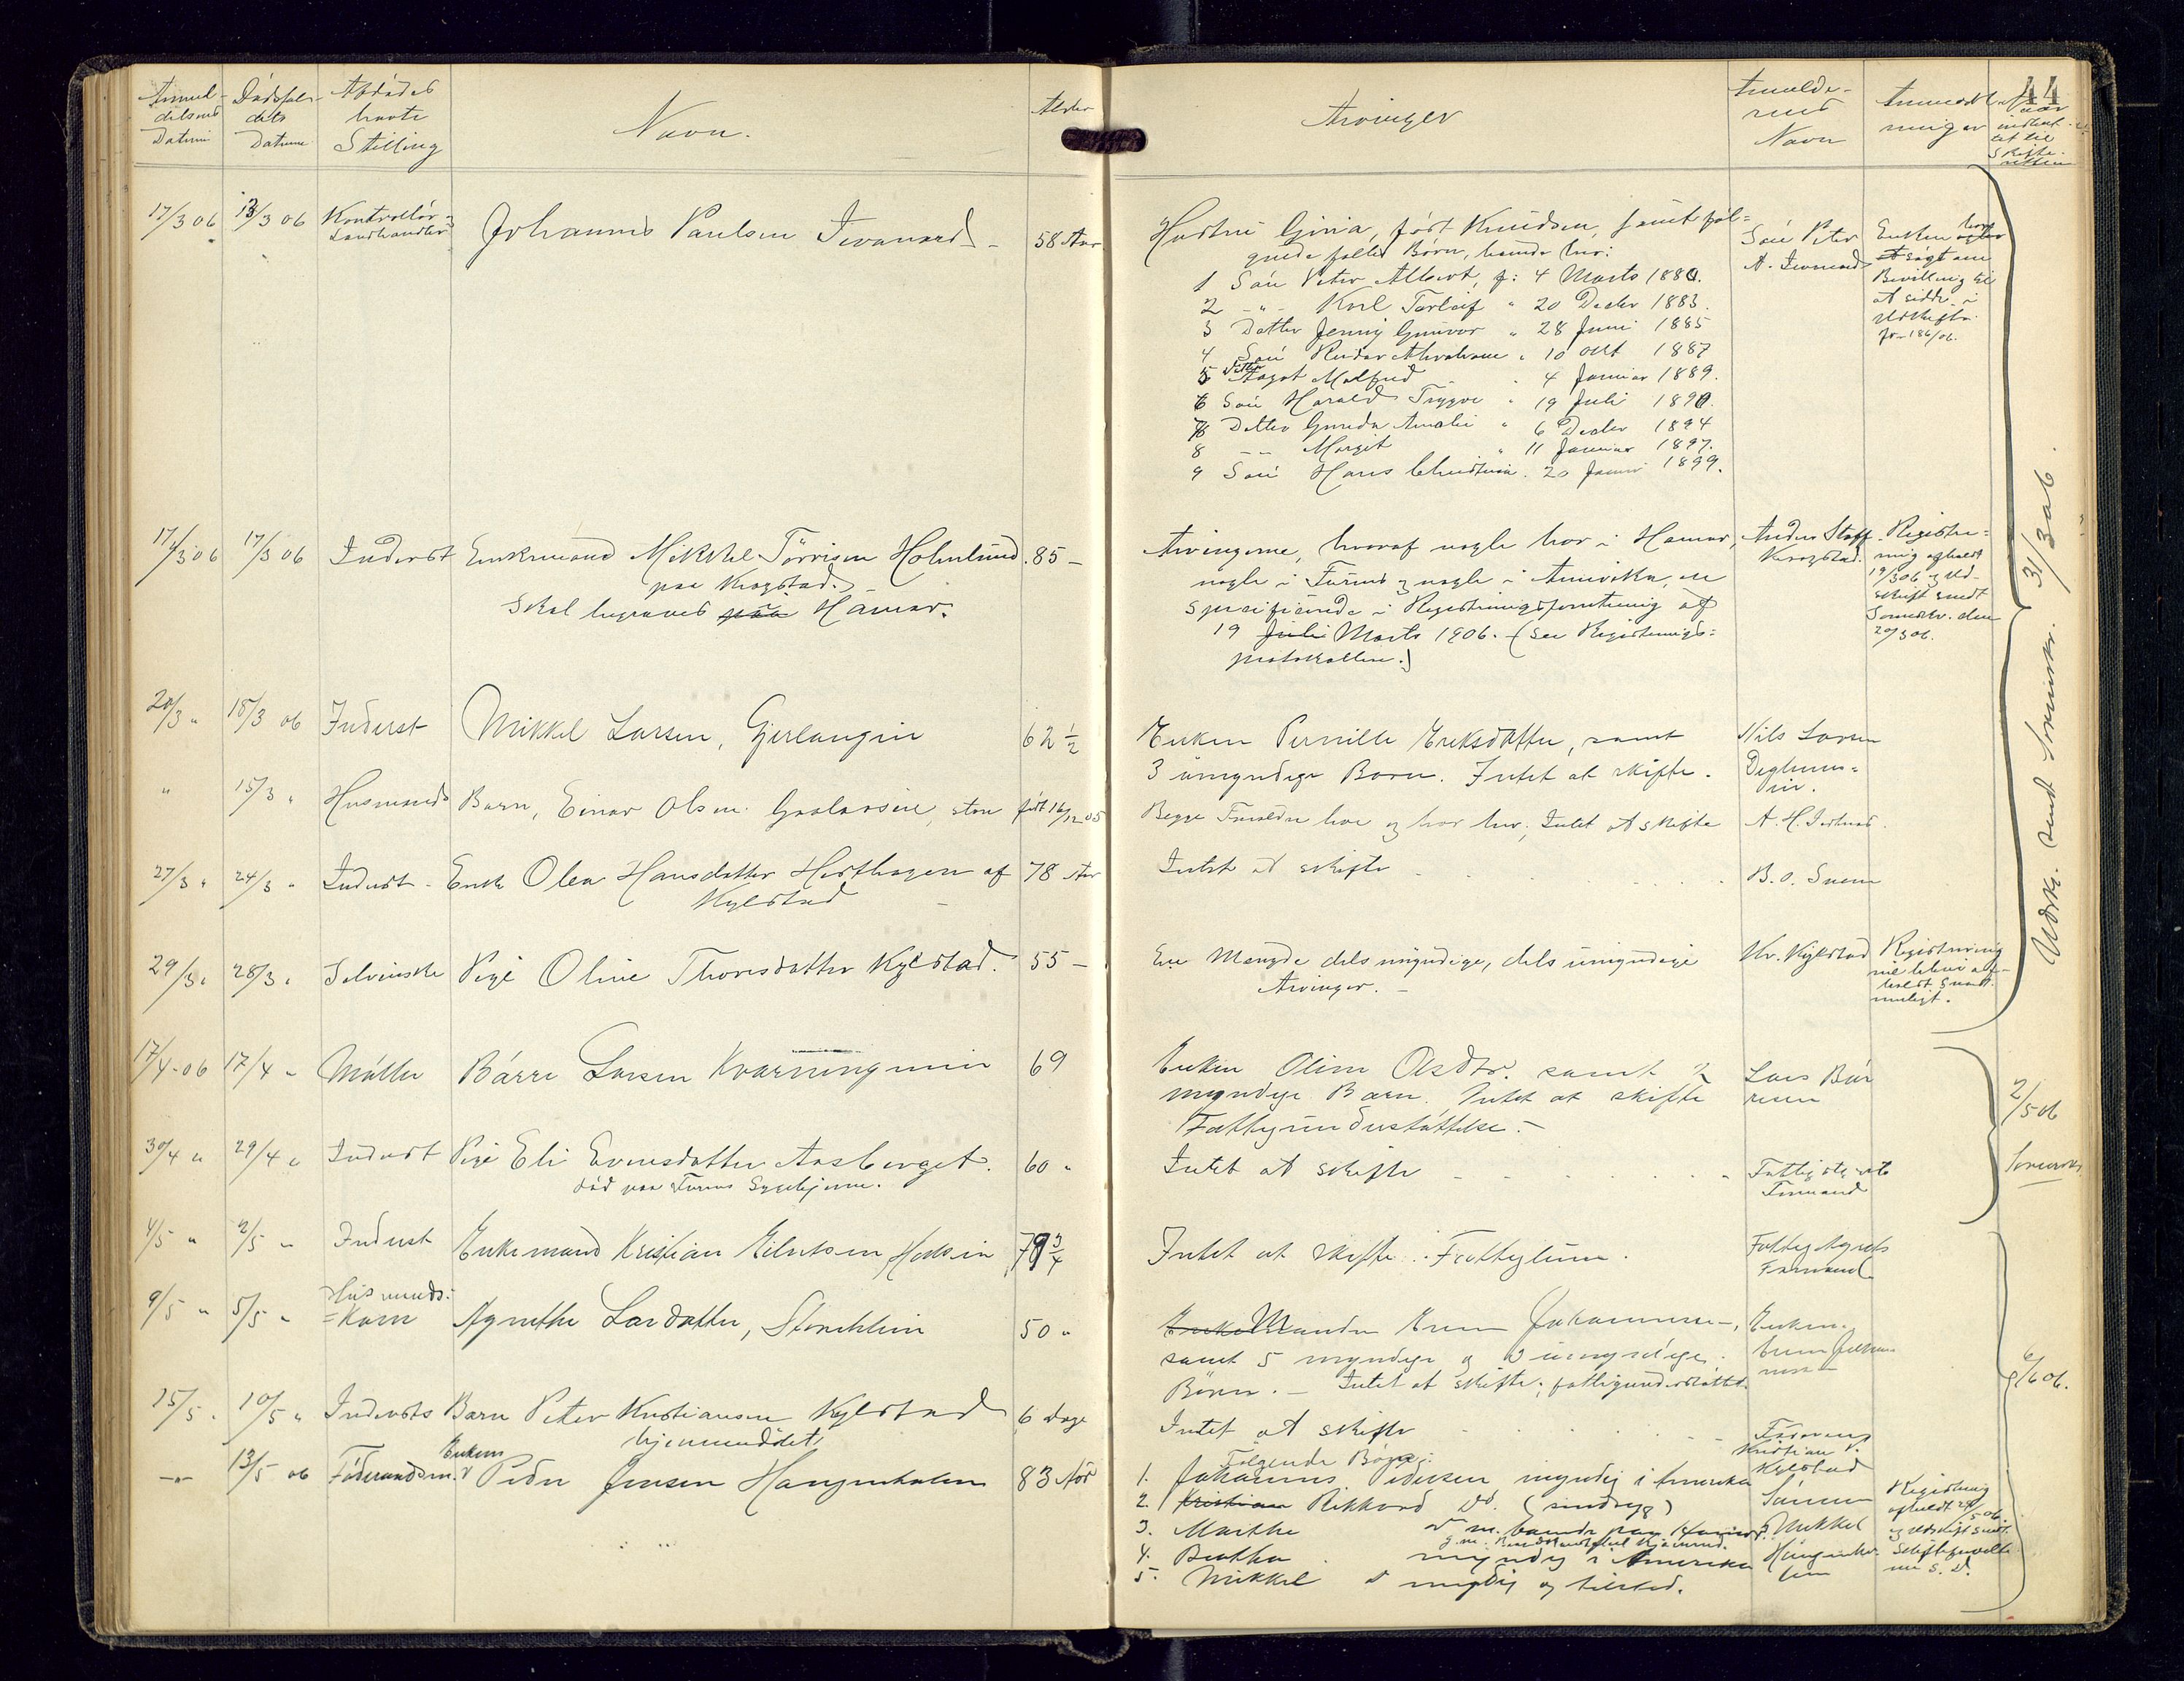 44
Anmeldelsens Datum
Dødsfaldets Datum
Afdødes havte Stilling
Navn.
Alder
Arvinger
Anmelderens Navn
Anmærkninger
Naar indberettet til Skifteretten
17/3 06 13/3 06 Kontrollør & Landhandler Johannes Paulsen 58 Aar
Hustru Gina, født Knudsen, samt føl=
gende fælles Børn, hvoraf
1 Søn Peter Albert, f: 4 Marts 1880.
2 - " - Karl Torleif " 20 Decbr 1883.
3 Datter Jenny Gunvor " 28 Juni 1885
4 Søn Reidar Abraham " 10 Okt 1887
5 Datter Aagot Malfred " 4 Januar 1889.
6 Søn Harald Trygve " 19 Juli 1890.
7 Datter Gunda Amalie " 6 Decbr 1894
8 - - Margit " 11 Januar 1897.
9 Søn Hans Christian. 20 Januar 1899.
Søn Peter
A.
Enken har
søgt om
Bevilling til
at sidde i
Uskifte.
Jr. 186/06.
17/3 06 17/3 06 Inderst Enkemand Mikkel Tørrisen Holmlund 85 -
paa Kragstad.
Skal begraves paa Hamar.
Arvingerne, hvoraf nogle bor i Hamar,
nogle i Furnes og nogle i Amerika, er
specificerede i Registreringsforretning af
19 Juli Marts 1906. (Se Registrerings=
protokollen.)
Anders Staff
Kragstad.
Registre=
ring afholdt
19/3 06 og Ud-
skrift sendt
Sorenskr. den
20/3 06.
20/3 " 18/3 06 Inderst Mikkel Larsen, Gjerlaugeie 62 ½
Enken Pernille Eriksdatter, samt
3 umyndige Børn. Intet at skifte.
Nils Larsen
" 15/3 " Husmands Barn, Einar Olsen født 16/12 05
Begge Forældre lever og bor her; Intet at skifte
A. H.
27/3 " 24/3 " Inderst - Enke Olea Hansdatter af 78 Aar
Kylstad
Intet at skifte
B. O.
29/3 " 28/3 " Selveierske Pige Oline Thoresdatter Kylstad. 55 -
En Mængde dels myndige, dels umyndige
Arvinger. -
Kr. Kylstad
Registrering
vil blive af-
holdt snart
muligt.
Udskr. sendt Sorenskr. 31/3 06.
17/4-06 17/4 " Møller Børre Larsen Kværningeneie 69
Enken Oline Olsdtr. samt 2
myndige Børn. Intet at skifte
Fattigunderstøttelse. -
Lars Bør
resen
30/4 " 29/4 " Inderst Pige Eli Evensdatter Aasberget. 60 "
død paa Furnes Sygehjem.
Intet at skifte
Fattigstyrets
Formand
2/5 06
Sorenskr.
4/5 " 2/5 " Inderst Enkemand Kristian Eilertsen 79 ¾
Intet at skifte. Fattiglem.
Fattigstyrets
Formand
9/5 " 5/5 " Husmands=
=Kone Agnethe Larsdatter, 50 "
Enke Manden Even Johannesen,
samt 5 myndige og 2 umyndige
Børn. - Intet at skifte; fattigunderstøttet.
Enkem.
Even Johan
nesen
15/5 " 10/5 " Indersts Barn Peter Kristiansen Kylstad 6 Dage
hjemmedøbt
Intet at skifte
Faderen
Kristian P.
Kylstad
- " - 13/5 06 Føderaadsm. Enkem Peder Jensen Haugenholen 83 Aar
Følgende Børn:
1. Johannes Pedersen myndig i Amerika
2. Kristian Rikkard Do. (sindssyg)
3. Marthe
4. Berthe myndig i Amerika
5. Mikkel myndig og tilsted.
Sønnen
Mikkel
Registrering
afholdt
og Udskrift sendt
S. D.
9/6 06.